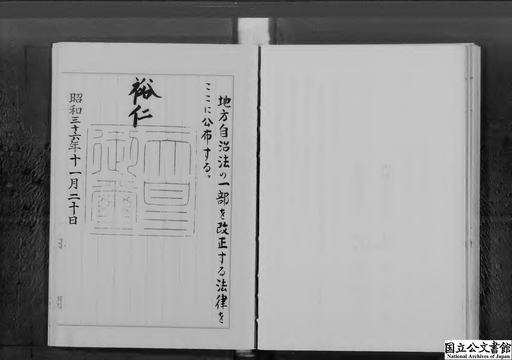 地方自治法の一部を改正する法律を
ここに公布する。
裕仁
天皇御璽
昭和三十六年十一月二十日
国立公文書館
National Archives of Japan